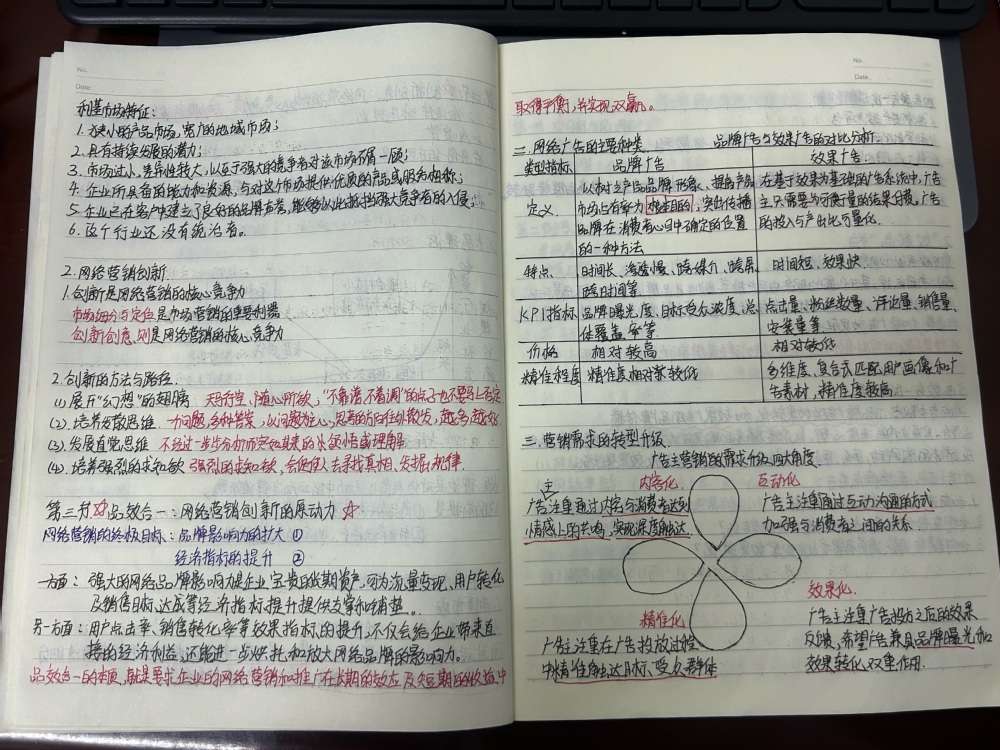 No.
Date.
利基市场特征：
1. 狭小的产品市场，宽广的地域市场；
2. 具有持续发展的潜力；
3. 市场过小、差异性较大，以至于强大的竞争者对该市场不屑一顾；
4. 企业所具有的能力和资源，与对这个市场提供优质的产品或服务相称；
5. 企业已在客户中建立了良好的品牌声誉，能够以此抵挡强大竞争者的入侵；
6. 这个行业还没有统治者。
2. 网络营销创新
1. 创新是网络营销的核心竞争力
市场细分与定位是市场营销的重要利器
创新创意，则是网络营销的核心竞争力
2. 创新的方法与路径.
(1) 展开“幻想”的翅膀 天马行空、随心所欲，“不靠谱、不着调”的点子也不要马上否定
(2). 培养发散思维 一个问题，多种答案，以问题为中心，思考的方向往外散发，越多越好
(3). 发展直觉思维 不经过一步步分析而突如其来的领悟或理解
(4). 培养强烈的求知欲 强烈的求知欲，会促使人去寻找真相、发掘规律.
第三村 ☆ 品效合一：网络营销创新的原动力 ☆
网络营销的终极目标：品牌影响力的扩大 ①
经济指标的提升 ②
一方面：强大的网络品牌影响力是企业宝贵的长期资产，可为流量变现、用户转化
及销售目标达成等经济指标提升提供支撑和铺垫。
另一方面：用户点击率、销售转化率等效果指标的提升，不仅会给企业带来直
接的经济利益，还能进一步烘托和放大网络品牌的影响力。
品效合一的本质，就是要求企业的网络营销和推广在长期的效应及短期的收益中
No.
Date.
取得平衡，并实现双赢。
二. 网络广告的主要种类 品牌广告与效果广告的对比分析.
类型指标 品牌广告 效果广告
定义 以树立产品品牌形象、提高产品 在基于效果为基础的广告系统中，广告
市场占有率为根本目的，突出传播 主只需要为可衡量的结果付费，广告
品牌在消费者心目中确定的位置 的投入与产出比可量化.
的一种方法
特点 时间长、渗透慢、跨媒介、跨屏、 时间短、效果快.
跨时间等.
KPI指标 品牌曝光度、目标受众浓度、总 点击量、粉丝数量、评论量、销售量、
体覆盖率等. 安装量等.
价格 相对较高 相对较低
精准程度 精准度相对较低 多维度、复合式匹配用户画像和广
告素材，精准度较高.
三. 营销需求的转型升级.
广告主营销的需求升级四大角度.
内容化 互动化
主
广告注重通过内容与消费者达到 广告主注重通过互动沟通的方式
情感上的共鸣，实现深度触达. 加强与消费者之间的关系
精准化 效果化.
广告主注重在广告投放过程 广告主注重广告投放之后的效果
中精准触达目标受众群体 反馈，希望广告兼具品牌曝光和
效果转化双重作用.